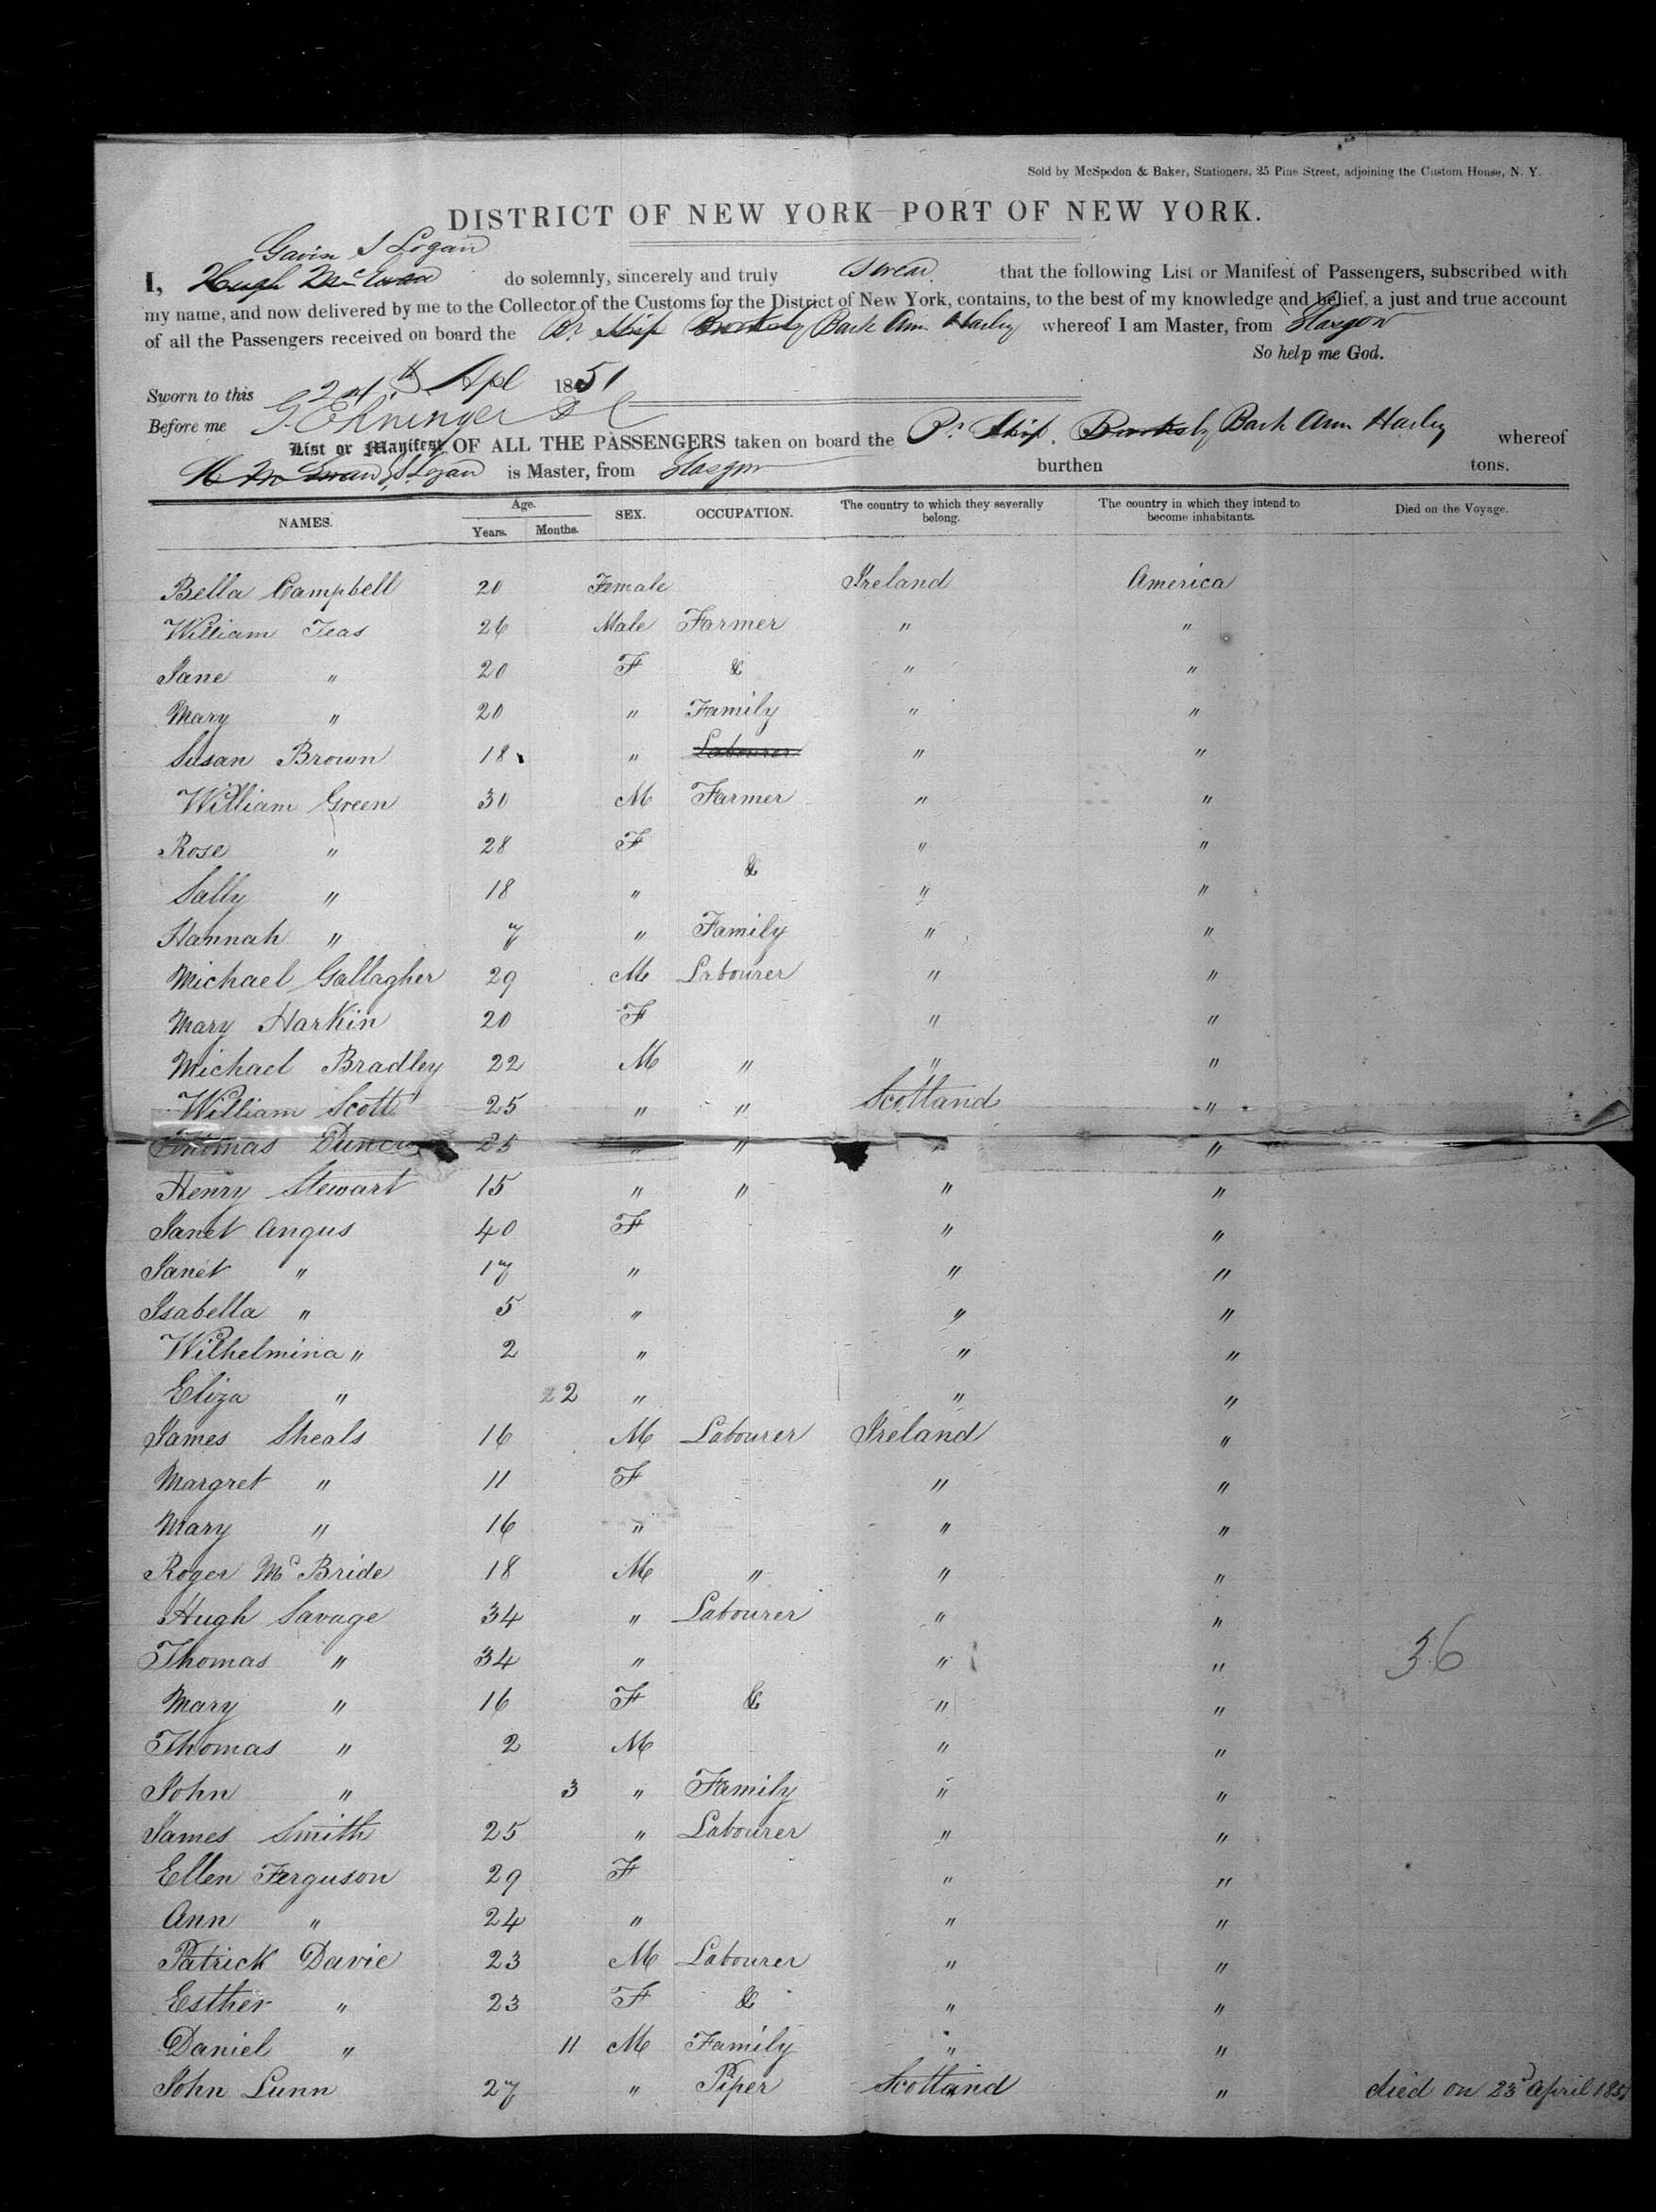 Sold by McSpedon & Baker, Stationers, 25 Pine Street, adjoining the Custom House, N. Y.
DISTRICT OF NEW YORK—PORT OF NEW YORK.
Gavin S Logan
I, Hugh McEwan do solemnly, sincerely and truly swear that the following List or Manifest of Passengers, subscribed with
my name, and now delivered by me to the Collector of the Customs for the District of New York, contains, to the best of my knowledge and belief, a just and true account
of all the Passengers received on board the Br Ship Brooksby Bark Ann Harley whereof I am Master, from Glasgow
So help me God.
Sworn to this 24th Apl 1851
Before me G. Ehninger D C
List or Manifest OF ALL THE PASSENGERS taken on board the Br Ship. Brooksby Bark Ann Harley whereof
H McEwan G S Logan is Master, from Glasgow burthen tons.
NAMES. Age. Years. Months. SEX. OCCUPATION. The country to which they severally belong. The country in which they intend to become inhabitants. Died on the Voyage.
Bella Campbell 20 Female Ireland America
William Teas 26 Male Farmer " "
Jane " 20 F & " "
Mary " 20 " Family " "
Susan Brown 18 " Labourer " "
William Green 30 M Farmer " "
Rose " 28 F " "
&
Sally " 18 " " "
Hannah " 7 " Family " "
Michael Gallagher 29 M Labourer " "
Mary Harkin 20 F " "
Michael Bradley 22 M " " "
William Scott 25 " " Scotland "
Thomas 25 " " " "
Henry Stewart 15 " " " "
Janet Angus 40 F " "
Janet " 17 " " "
Isabella " 5 " " "
Wilhelmina " 2 " " "
Eliza " 22 " " "
James Sheals 16 M Labourer Ireland "
Margret " 11 F " "
Mary " 16 " " "
Roger McBride 18 M " " "
Hugh Savage 34 " Labourer " "
Thomas " 34 " " " 36
Mary " 16 F & " "
Thomas " 2 M " "
John " 3 " Family " "
James Smith 25 " Labourer " "
Ellen Ferguson 29 F " "
Ann " 24 " " "
Patrick Davie 23 M Labourer " "
Esther " 23 F & " "
Daniel " 11 M Family " "
John Lunn 27 " Piper Scotland " died on 23d April 1851